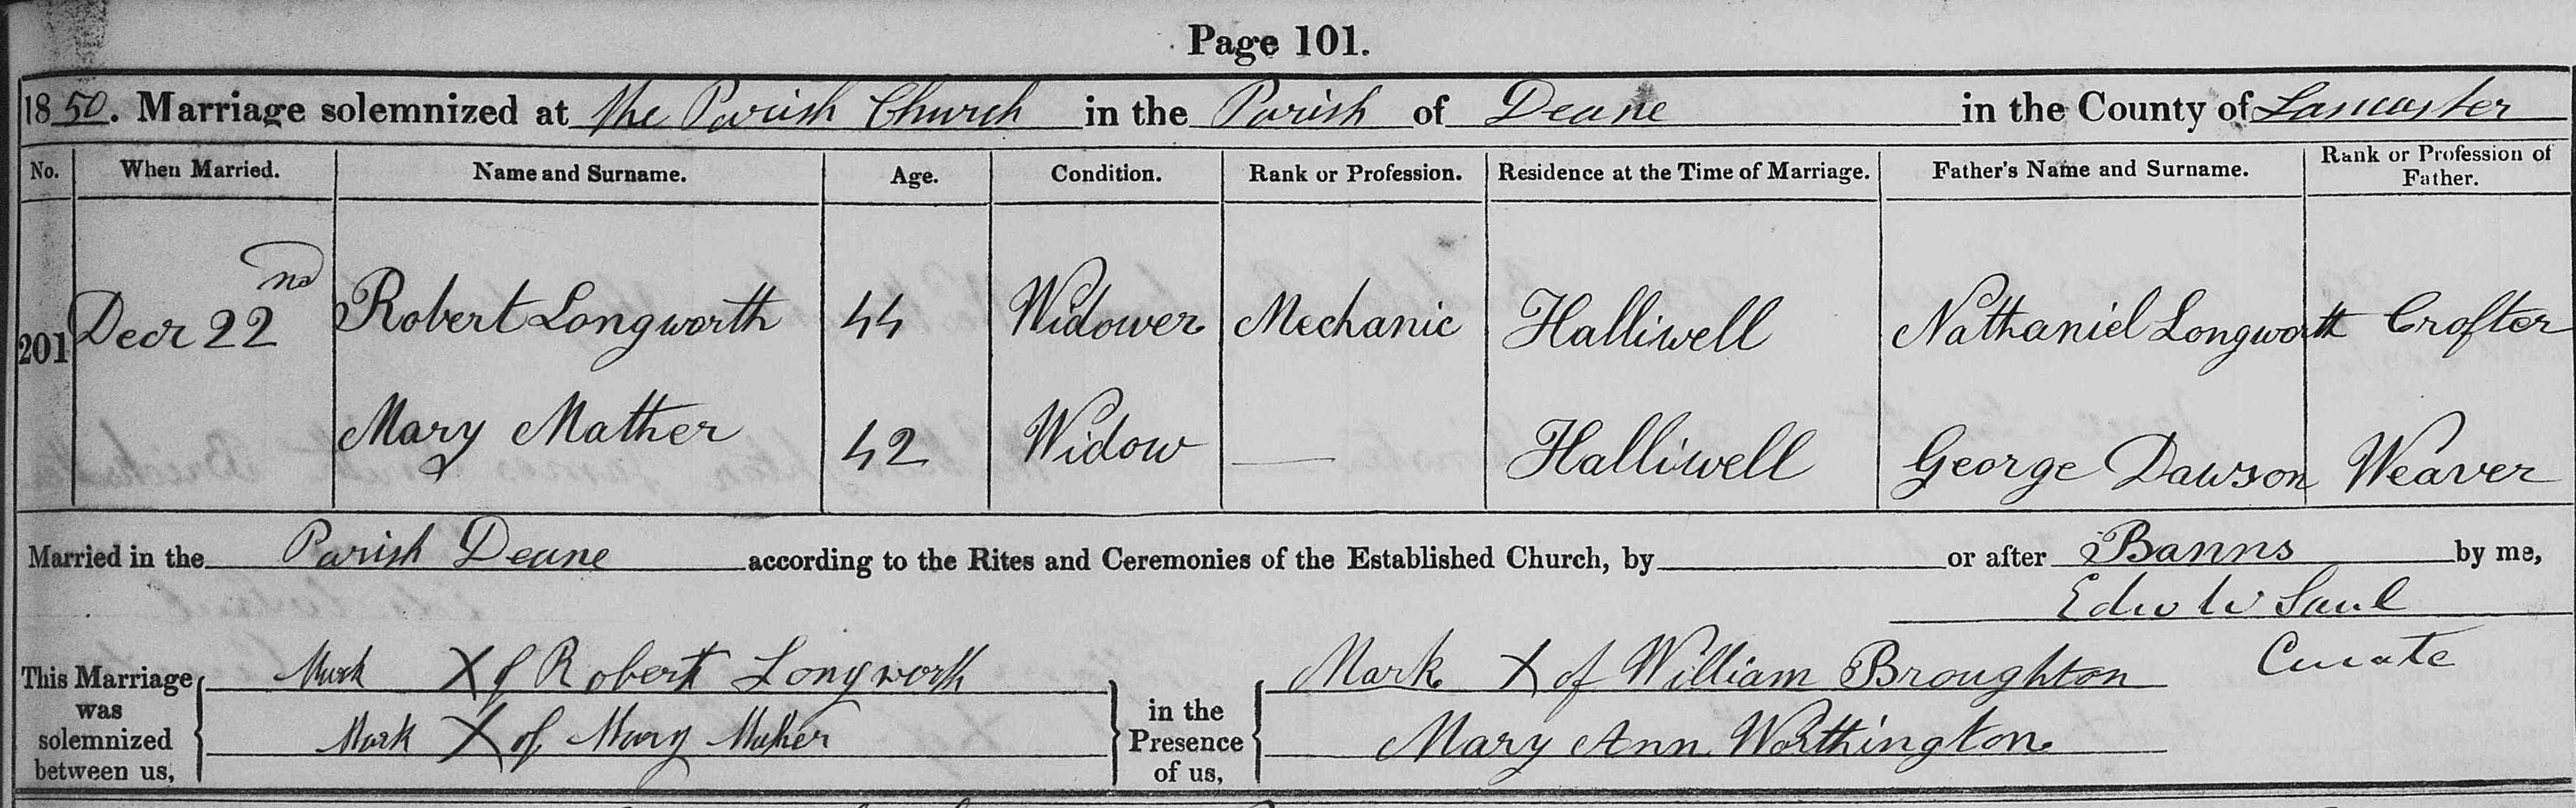 Page 101.
1850. Marriage solemnized at the Parish Church in the Parish of Deane in the County of Lancaster
No. When Married. Name and Surname. Age. Condition. Rank or Profession. Residence at the Time of Marriage. Father's Name and Surname. Rank or Profession of Father.
201 Decr 22nd Robert Longworth 44 Widower Mechanic Halliwell Nathaniel Longworth Crofter
Mary Mather 42 Widow — Halliwell George Dawson Weaver
Married in the Parish Deane according to the Rites and Ceremonies of the Established Church, by or after Banns by me,
Edw W Saul
Curate
This Marriage was solemnized between us, Mark X of Robert Longworth
Mark X of Mary Mather
in the Presence of us, Mark X of William Broughton
Mary Ann Worthington